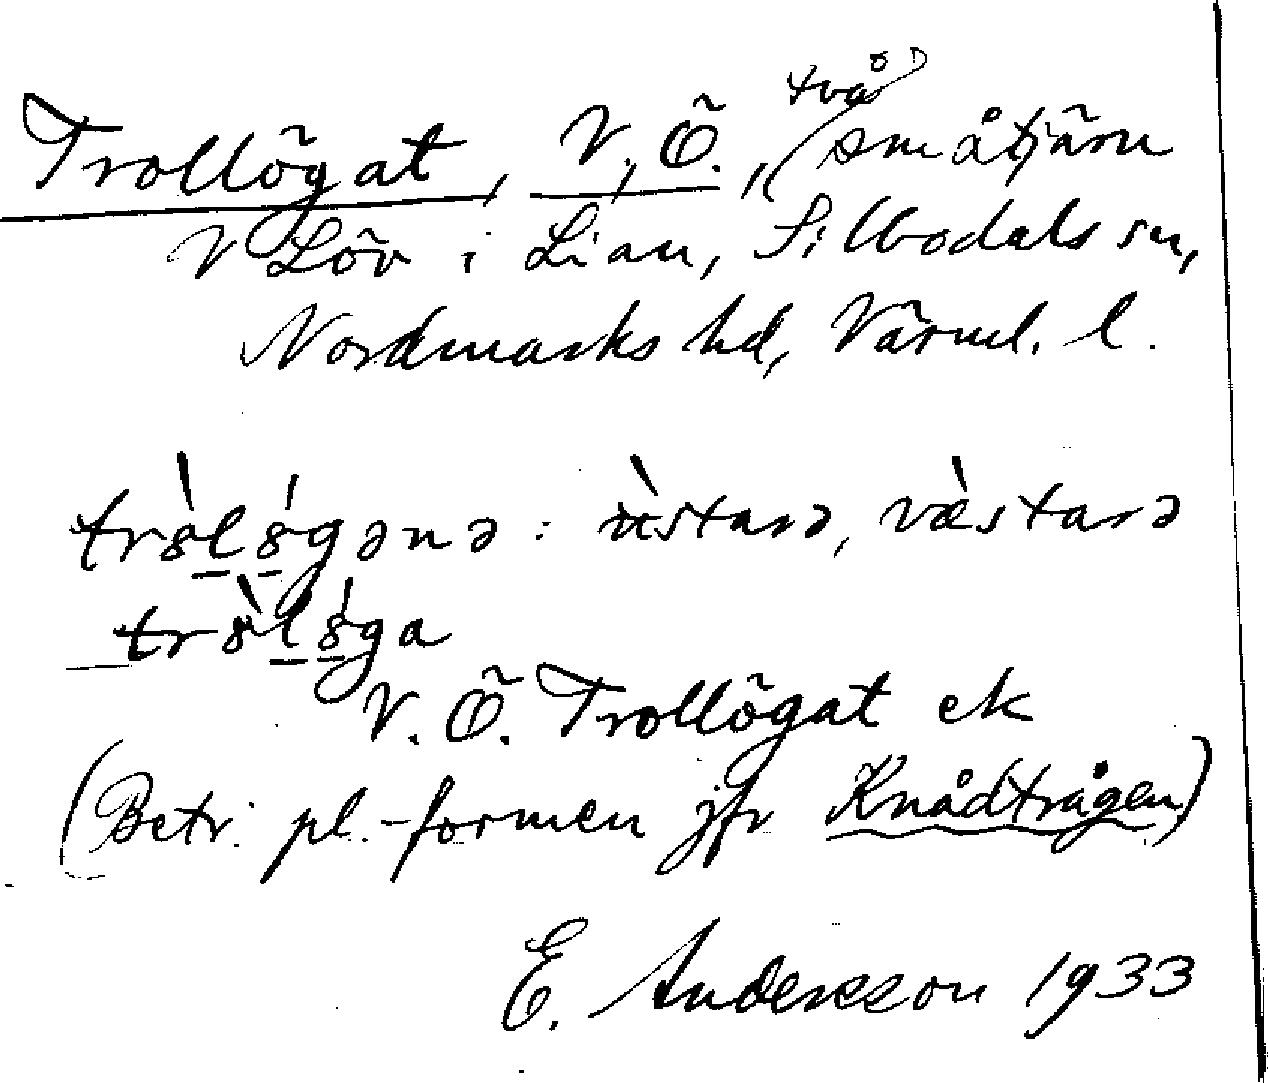 Trollögat, V, Ö., två småtjärn
V Löv i Lian, Silbodals sn,
Nordmarks hd, Värml. l.
V. Ö. Trollögat ek
(Betr. pl.-formen jfr Knådtrågen)
E. Andersson 1933